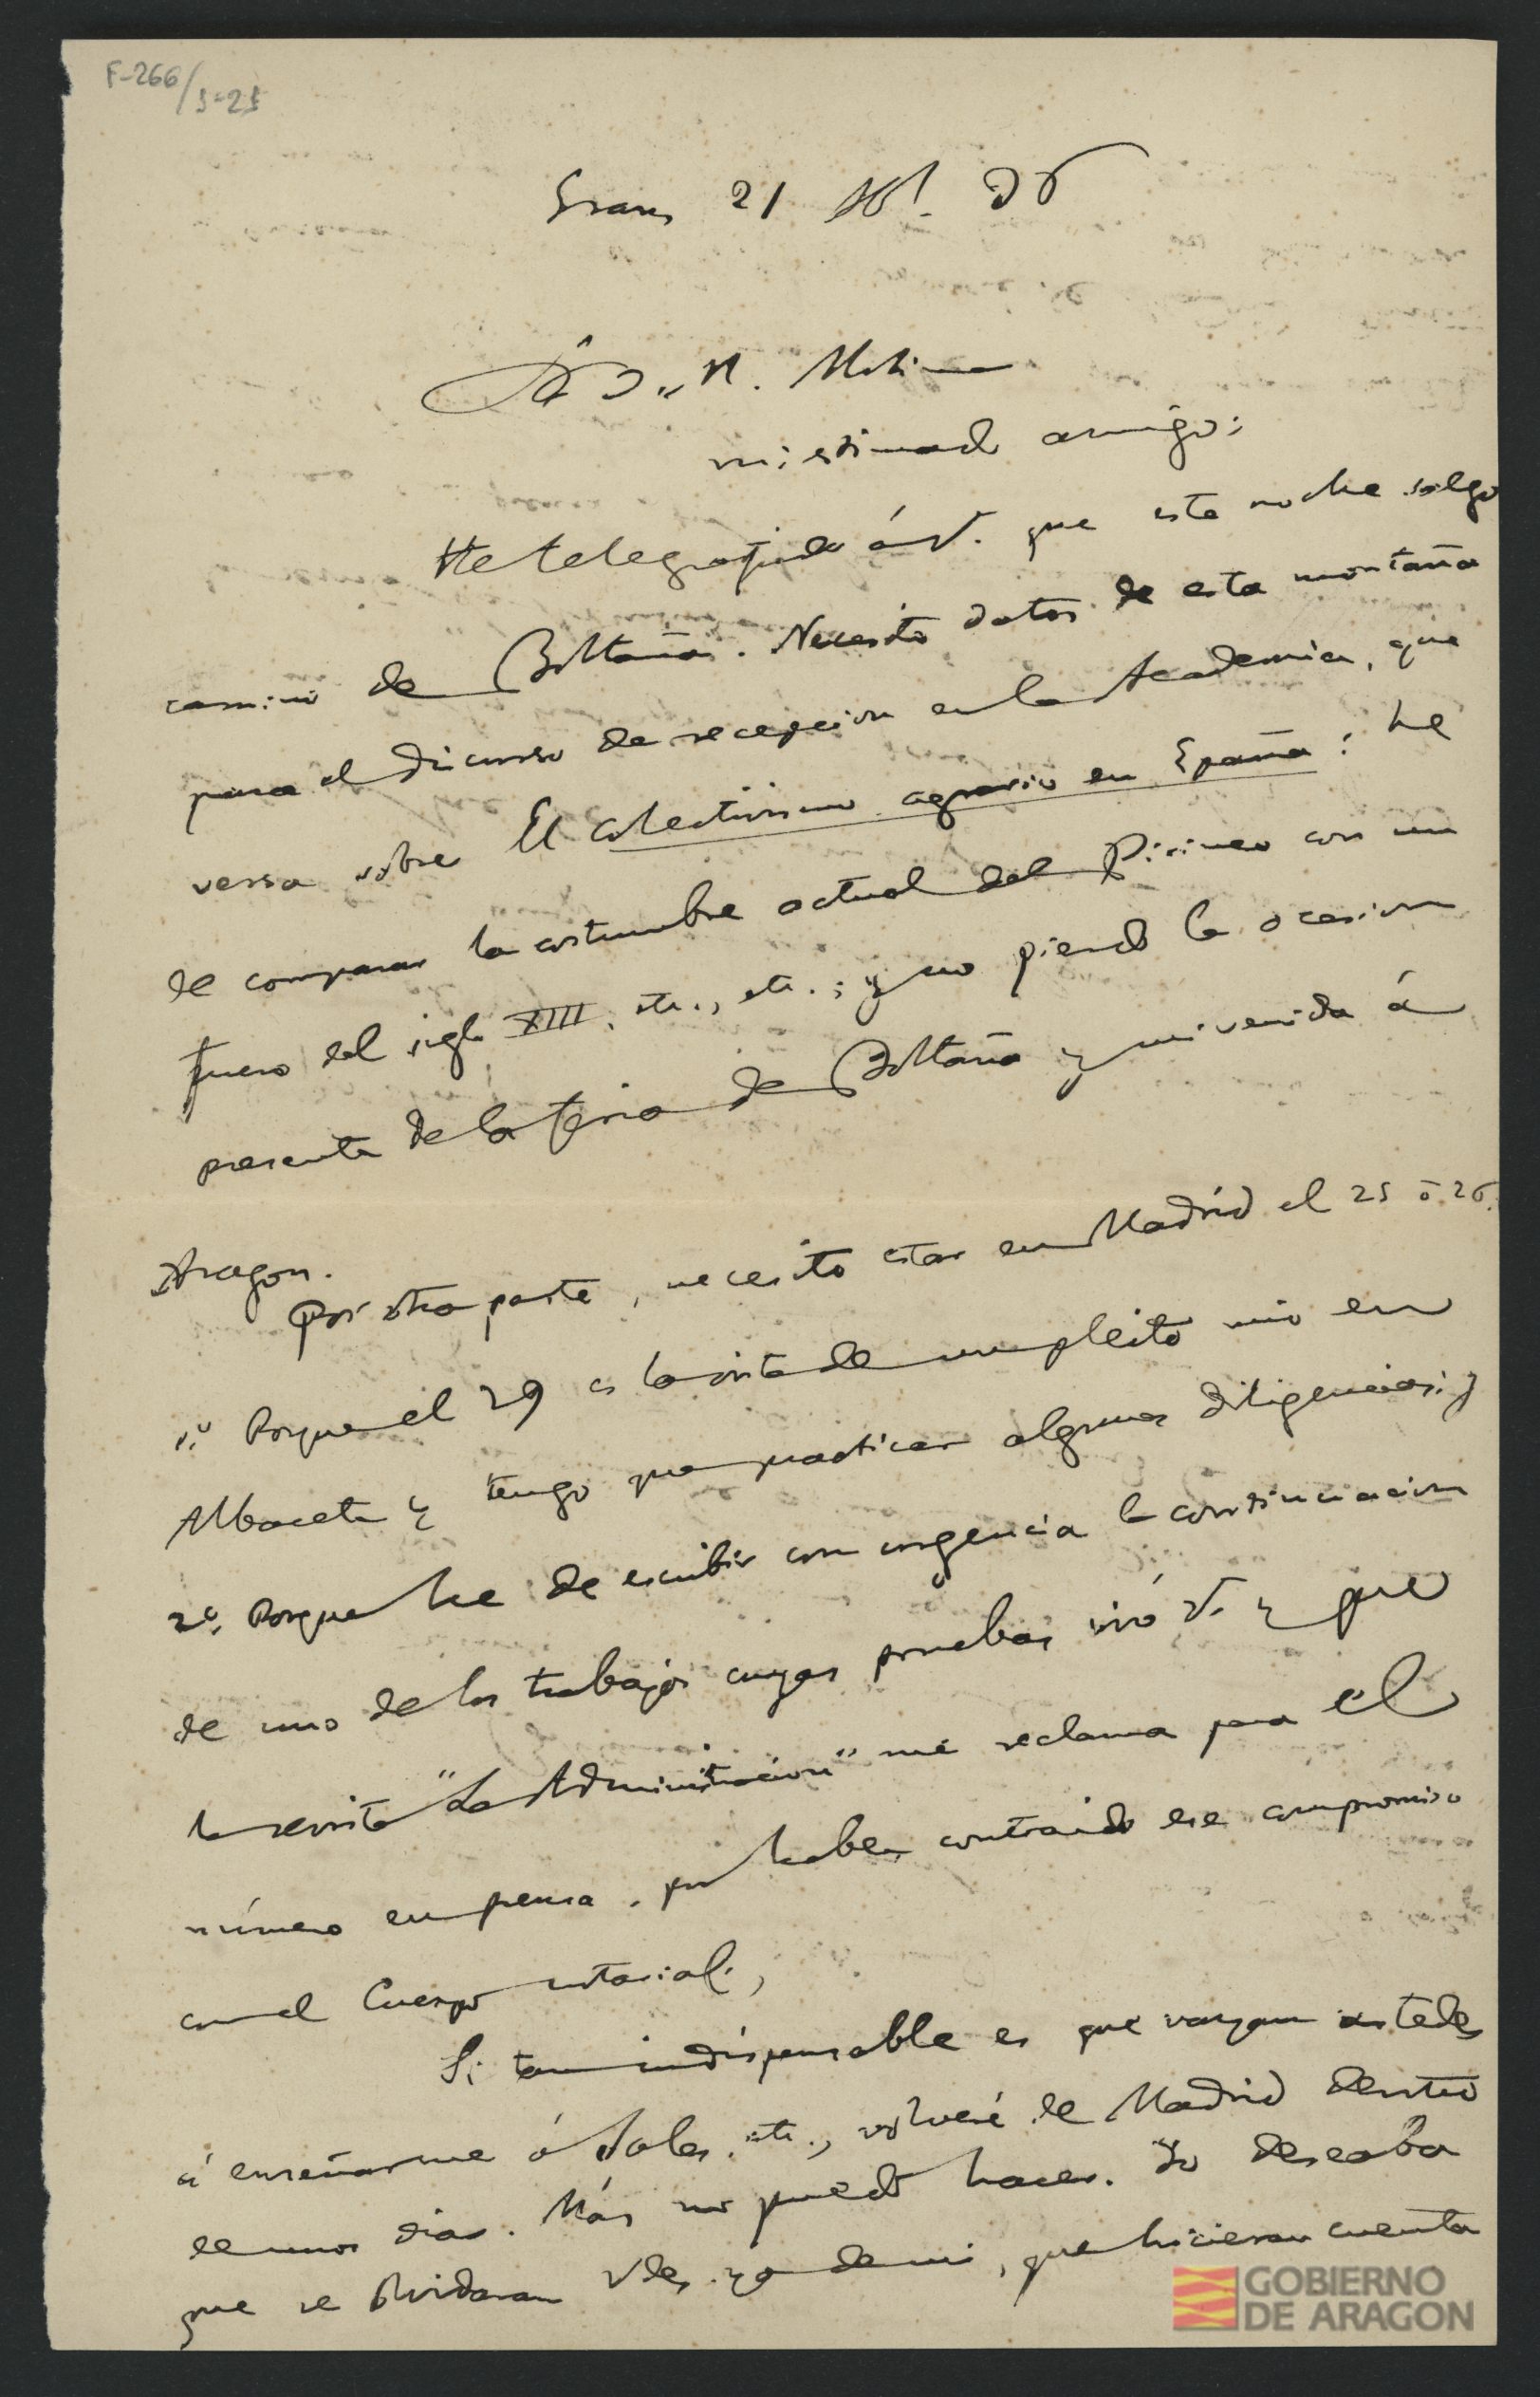 F-266/5-25
Graus 21 96
Á D. M. Molina
mi estimado amigo:
He telegrafiado á V. que esta noche salgo
camino de Boltaña. Necesito datos de esta montaña
para el discurso de recepcion en la Academia, que
versa sobre El colectivismo agrario en España: he
de comparar la costumbre actual del Pirineo con un
fuero del siglo XIII, etc., etc.; y no pierdo la ocasion
presente de la feria de Boltaña y mi venida á
Aragon.
Por otra parte, necesito estar en Madrid el 25 ó 26.
1.º Porque el 29 es la vista de un pleito mio en
Albacete y tengo que practicar algunas diligencias; y
2.º Porque he de escribir con urgencia la continuacion
de uno de los trabajos cuyas pruebas vió V. y que
la revista "La Administracion" me reclama para el
número en prensa, por haber contraido ese compromiso
con el Cuerpo notarial.
Si tan indispensable es que vayan ustedes
á enseñarme ó etc., volveré de Madrid dentro
de unos dias. Más no puedo hacer. Yo deseaba
que se olvidaran Vdes. ya de mi, que hicieran cuenta
GOBIERNO
DE ARAGON